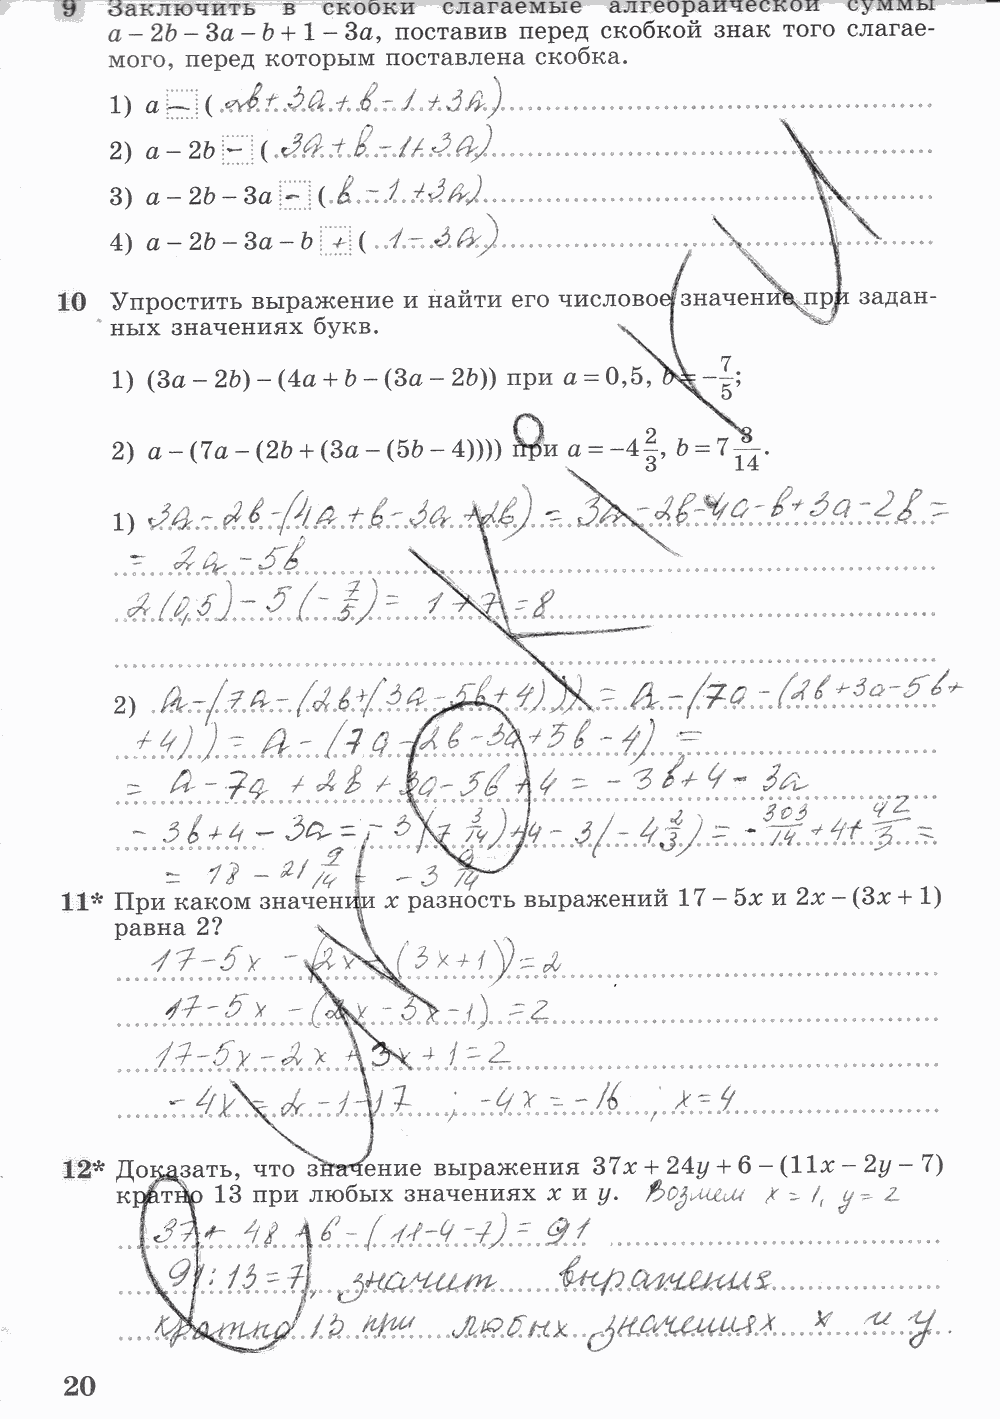 9 Заключить в скобки слагаемые алгебраической суммы
a – 2b – 3a – b + 1 – 3a, поставив перед скобкой знак того слагае-
мого, перед которым поставлена скобка.
1) a – ( 2b + 3a + b – 1 + 3a)
2) a – 2b – ( 3a + b – 1 + 3a)
3) a – 2b – 3a – ( b – 1 + 3a)
4) a – 2b – 3a – b + ( 1 – 3a)
10 Упростить выражение и найти его числовое значение при задан-
ных значениях букв.
1) (3a – 2b) – (4a + b – (3a – 2b)) при a = 0,5, b = –7/5;
2) a – (7a – (2b + (3a – (5b – 4)))) при a = –4 2/3, b = 7 3/14.
1) 3a – 2b – (4a + b – 3a + 2b) = 3a – 2b – 4a – b + 3a – 2b =
= 2a – 5b
2(0,5) – 5(– 7/5) = 1 + 7 = 8
2) a – (7a – (2b + (3a – 5b + 4))) = a – (7a – (2b + 3a – 5b +
+ 4)) = a – (7a – 2b – 3a + 5b – 4) =
= a – 7a + 2b + 3a – 5b + 4 = – 3b + 4 – 3a
– 3b + 4 – 3a = – 3(7 3/14) + 4 – 3(– 4 2/3) = – 303/14 + 4 + 42/3 =
= 18 – 21 9/14 = – 3 9/14
11* При каком значении x разность выражений 17 – 5x и 2x – (3x + 1)
равна 2?
17 – 5x – (2x – (3x + 1)) = 2
17 – 5x – (2x – 3x – 1) = 2
17 – 5x – 2x + 3x + 1 = 2
– 4x = 2 – 1 – 17 ; – 4x = – 16 ; x = 4
12* Доказать, что значение выражения 37x + 24y + 6 – (11x – 2y – 7)
кратно 13 при любых значениях x и y. Возмем x = 1, y = 2
37 + 48 + 6 – (11 – 4 – 7) = 91
91 : 13 = 7, значит выражения
кратно 13 при любых значениях x и y.
20